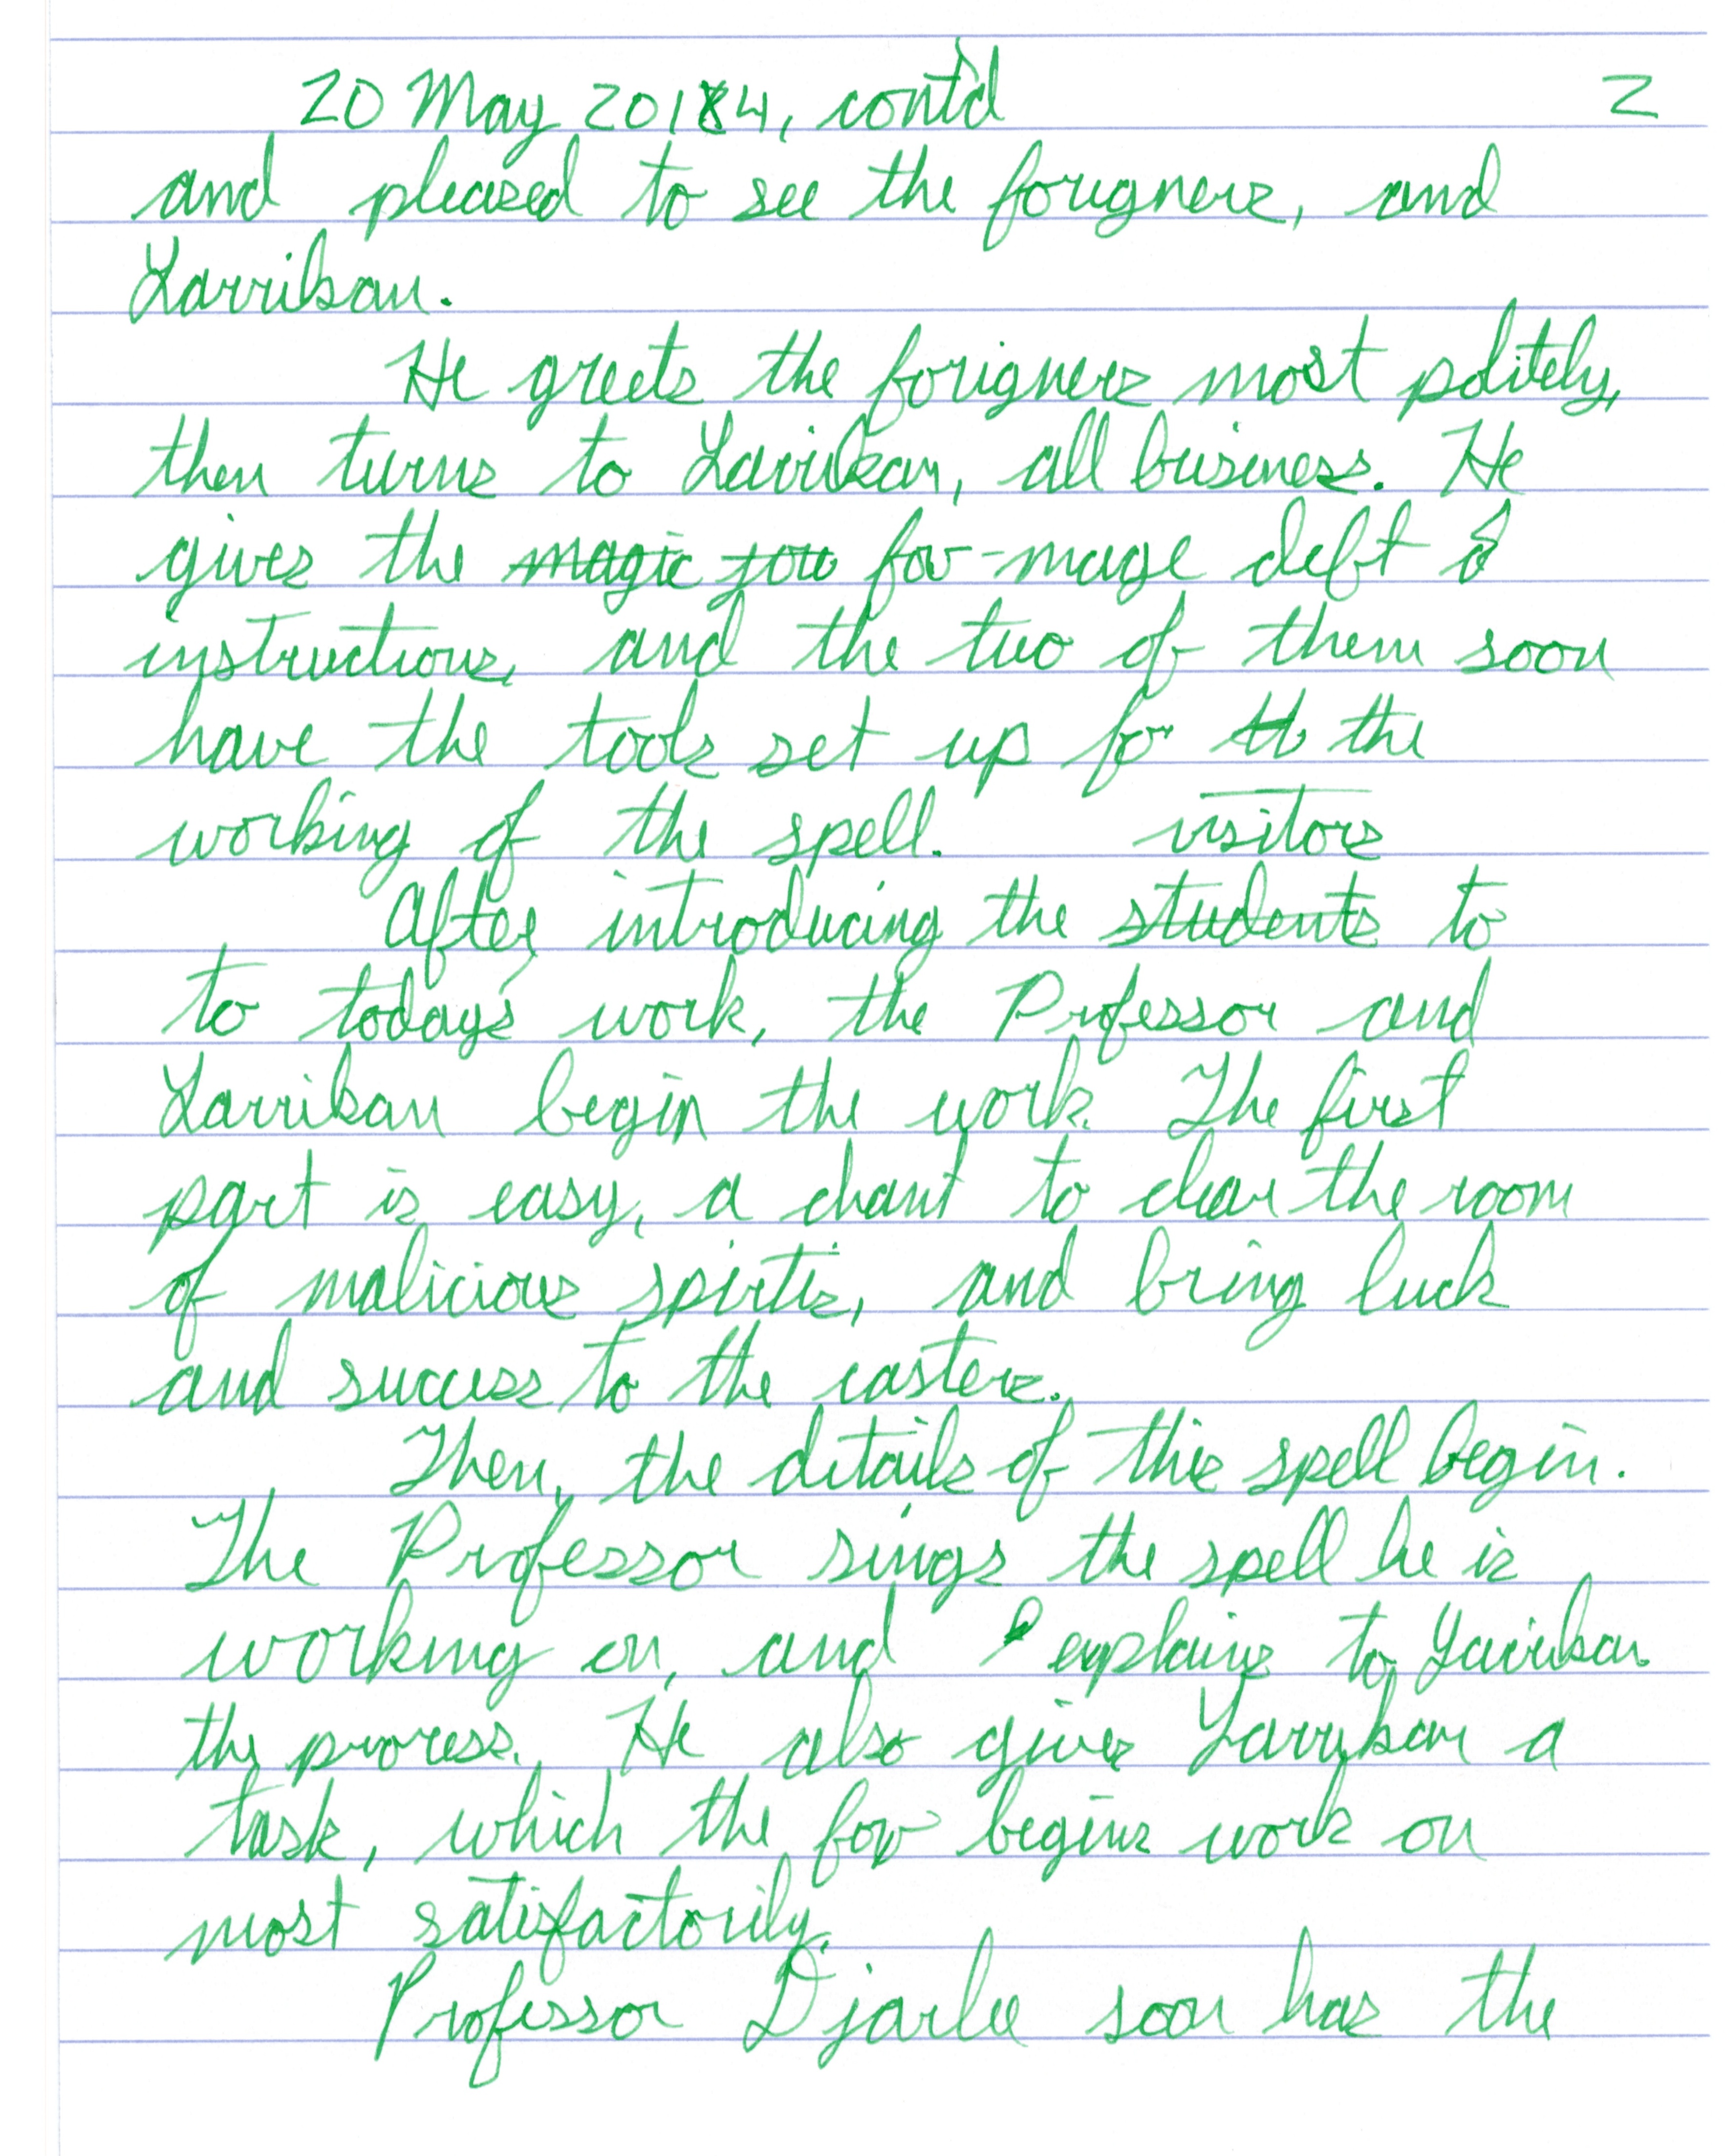 20 May 2014, cont'd 2
and pleased to see the forigners, and
Larrikan.
He greets the forigners most politely,
then turns to Larrikan, all business. He
gives the magic you fov-mage deft
instructions, and the two of them soon
have the tools set up for th the
working of the spell. visitors
After introducing the students to
to today's work, the Professor and
Larrikan begin the work. The first
part is easy, a chant to clear the room
of malicious spirtis, and bring luck
and success to the casters.
Then, the ditails of this spell begin.
The Professor sings the spell he is
working on, and explains to Larrikan
the process. He also gives Larrikan a
task, which the fov begins work on
most satisfactorily.
Professor Djarlee soon has the